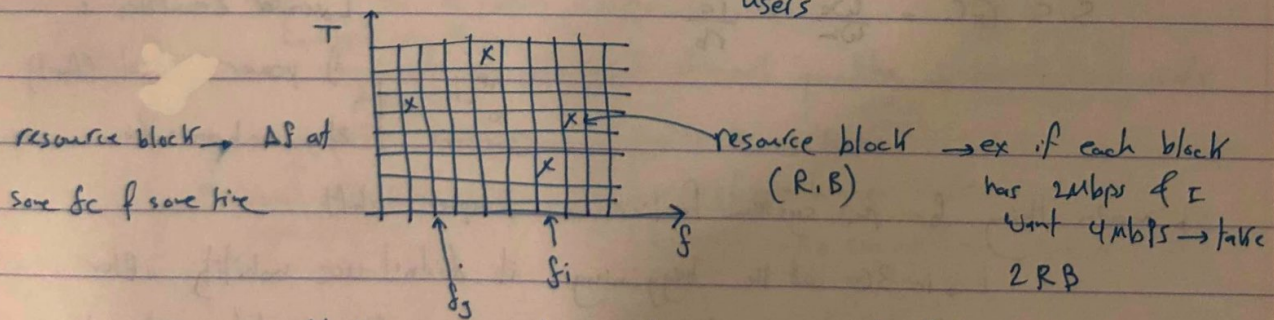 users
T
x
x
x
x
resource block → Δf at
some fc & some time
resource block → ex if each block
(R.B)
has 2Mbps & I
want 4Mbps → take
2 RB
f
fj
fi